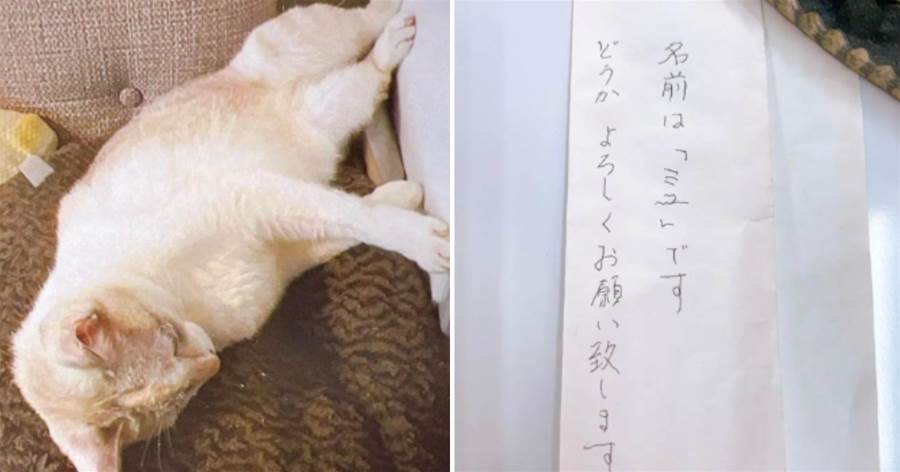 名前は「ミュー」です
どうかよろしくお願い致します